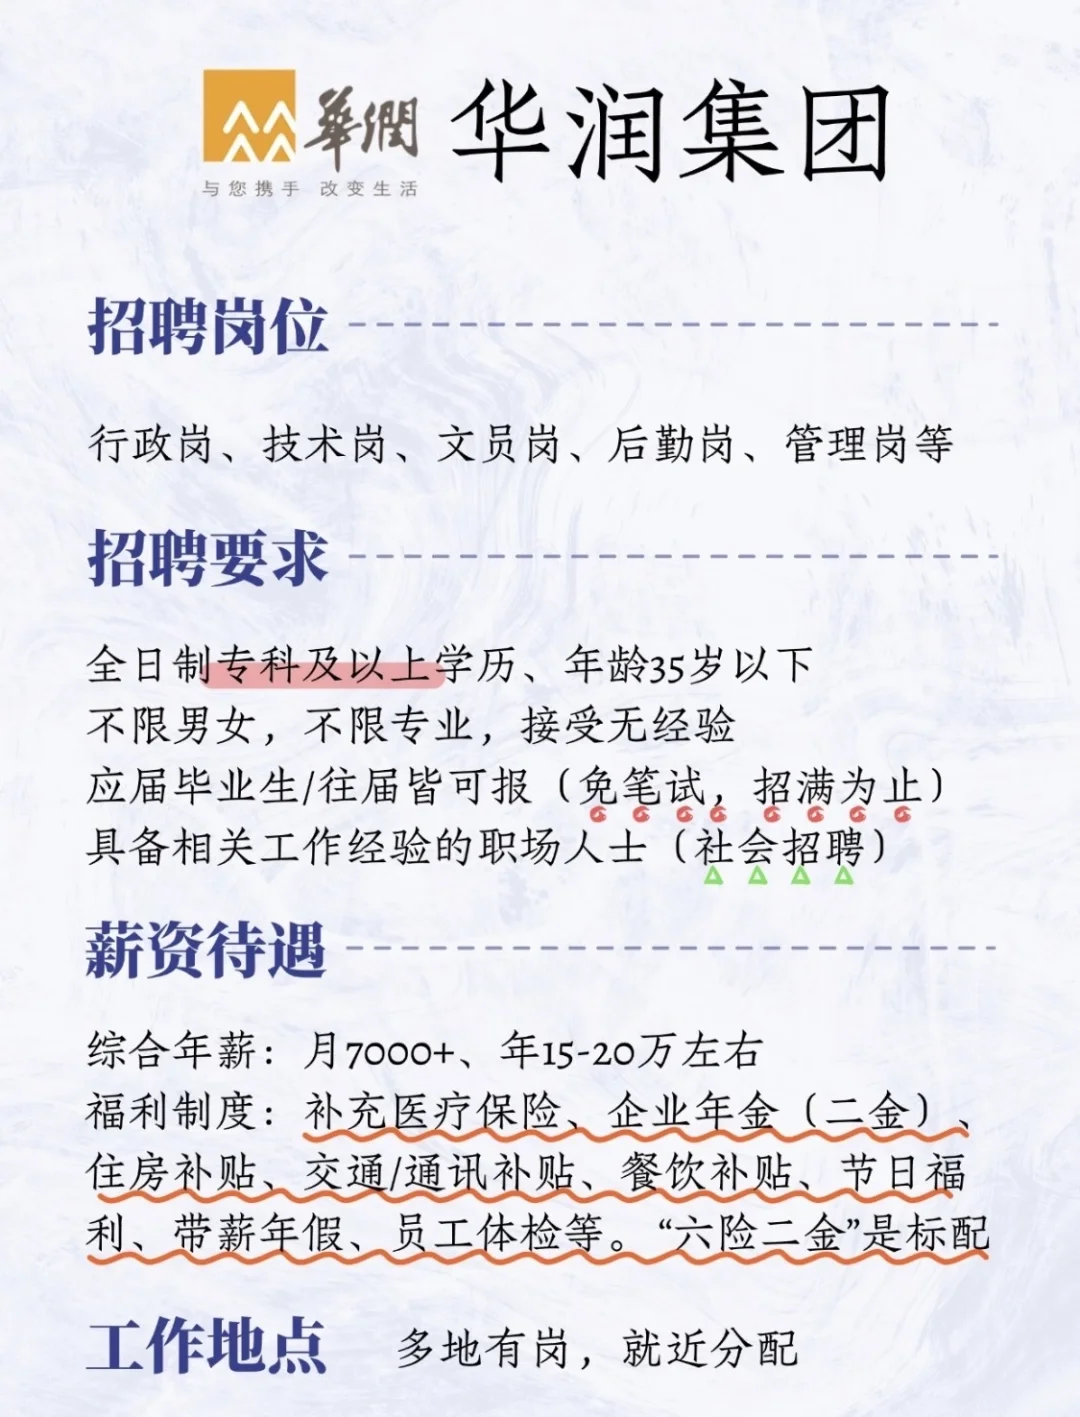 華潤
与您携手 改变生活
华润集团
招聘岗位
行政岗、技术岗、文员岗、后勤岗、管理岗等
招聘要求
全日制专科及以上学历、年龄35岁以下
不限男女，不限专业，接受无经验
应届毕业生/往届皆可报（免笔试，招满为止）
具备相关工作经验的职场人士（社会招聘）
薪资待遇
综合年薪：月7000+、年15-20万左右
福利制度：补充医疗保险、企业年金（二金）、
住房补贴、交通/通讯补贴、餐饮补贴、节日福
利、带薪年假、员工体检等。“六险二金”是标配
工作地点 多地有岗，就近分配